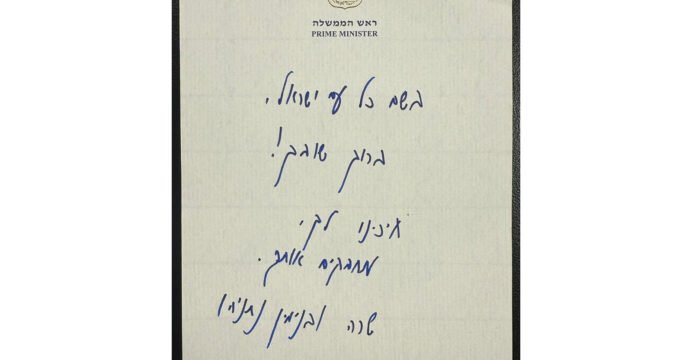 ראש הממשלה
PRIME MINISTER
בשם כל עם ישראל,
ברוך שובך!
חיכינו לך,
מחבקים אותך.
שרה ובנימין נתניהו